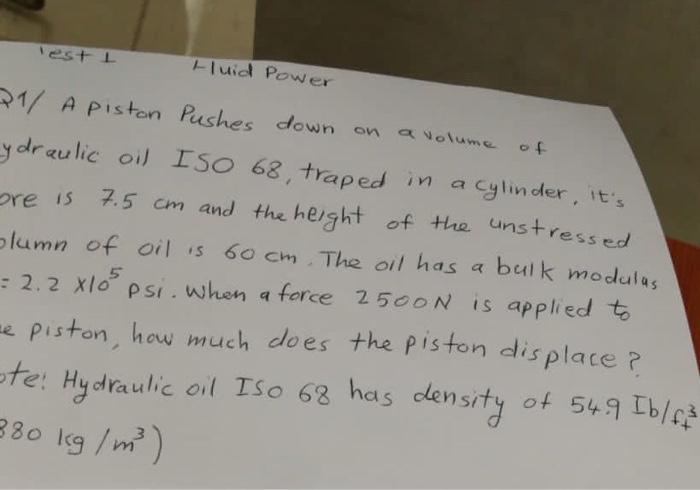 Test 1 Fluid Power
Q1/ A piston Pushes down on a volume of
ydraulic oil ISO 68, traped in a cylinder, it's
ore is 7.5 cm and the height of the unstressed
olumn of oil is 60 cm. The oil has a bulk modulas
= 2.2 x10⁵ psi. When a force 2500N is applied to
e piston, how much does the piston displace?
ote: Hydraulic oil ISO 68 has density of 54.9 Ib/ft³
880 kg/m³)